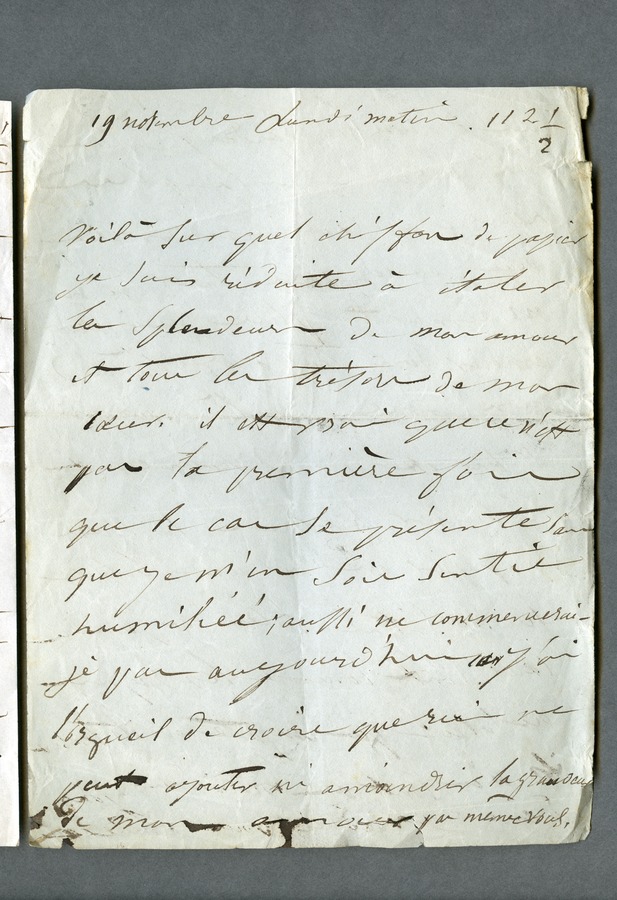 19 novembre Lundi matin. 11 h ½
Voilà sur quel chiffon de papier
je suis réduite à étaler
les splendeurs de mon amour
et tous les trésors de mon
cœur. il est vrai que ce n'est
pas la première fois
que le cas se présente sans
que je m'en sois sentie
humiliée; aussi ne commencerai-
je pas aujourd'hui car j'ai
l'orgueil de croire que rien ne
peut ajouter ni amoindrir la grandeur
de mon amour pas même vous.